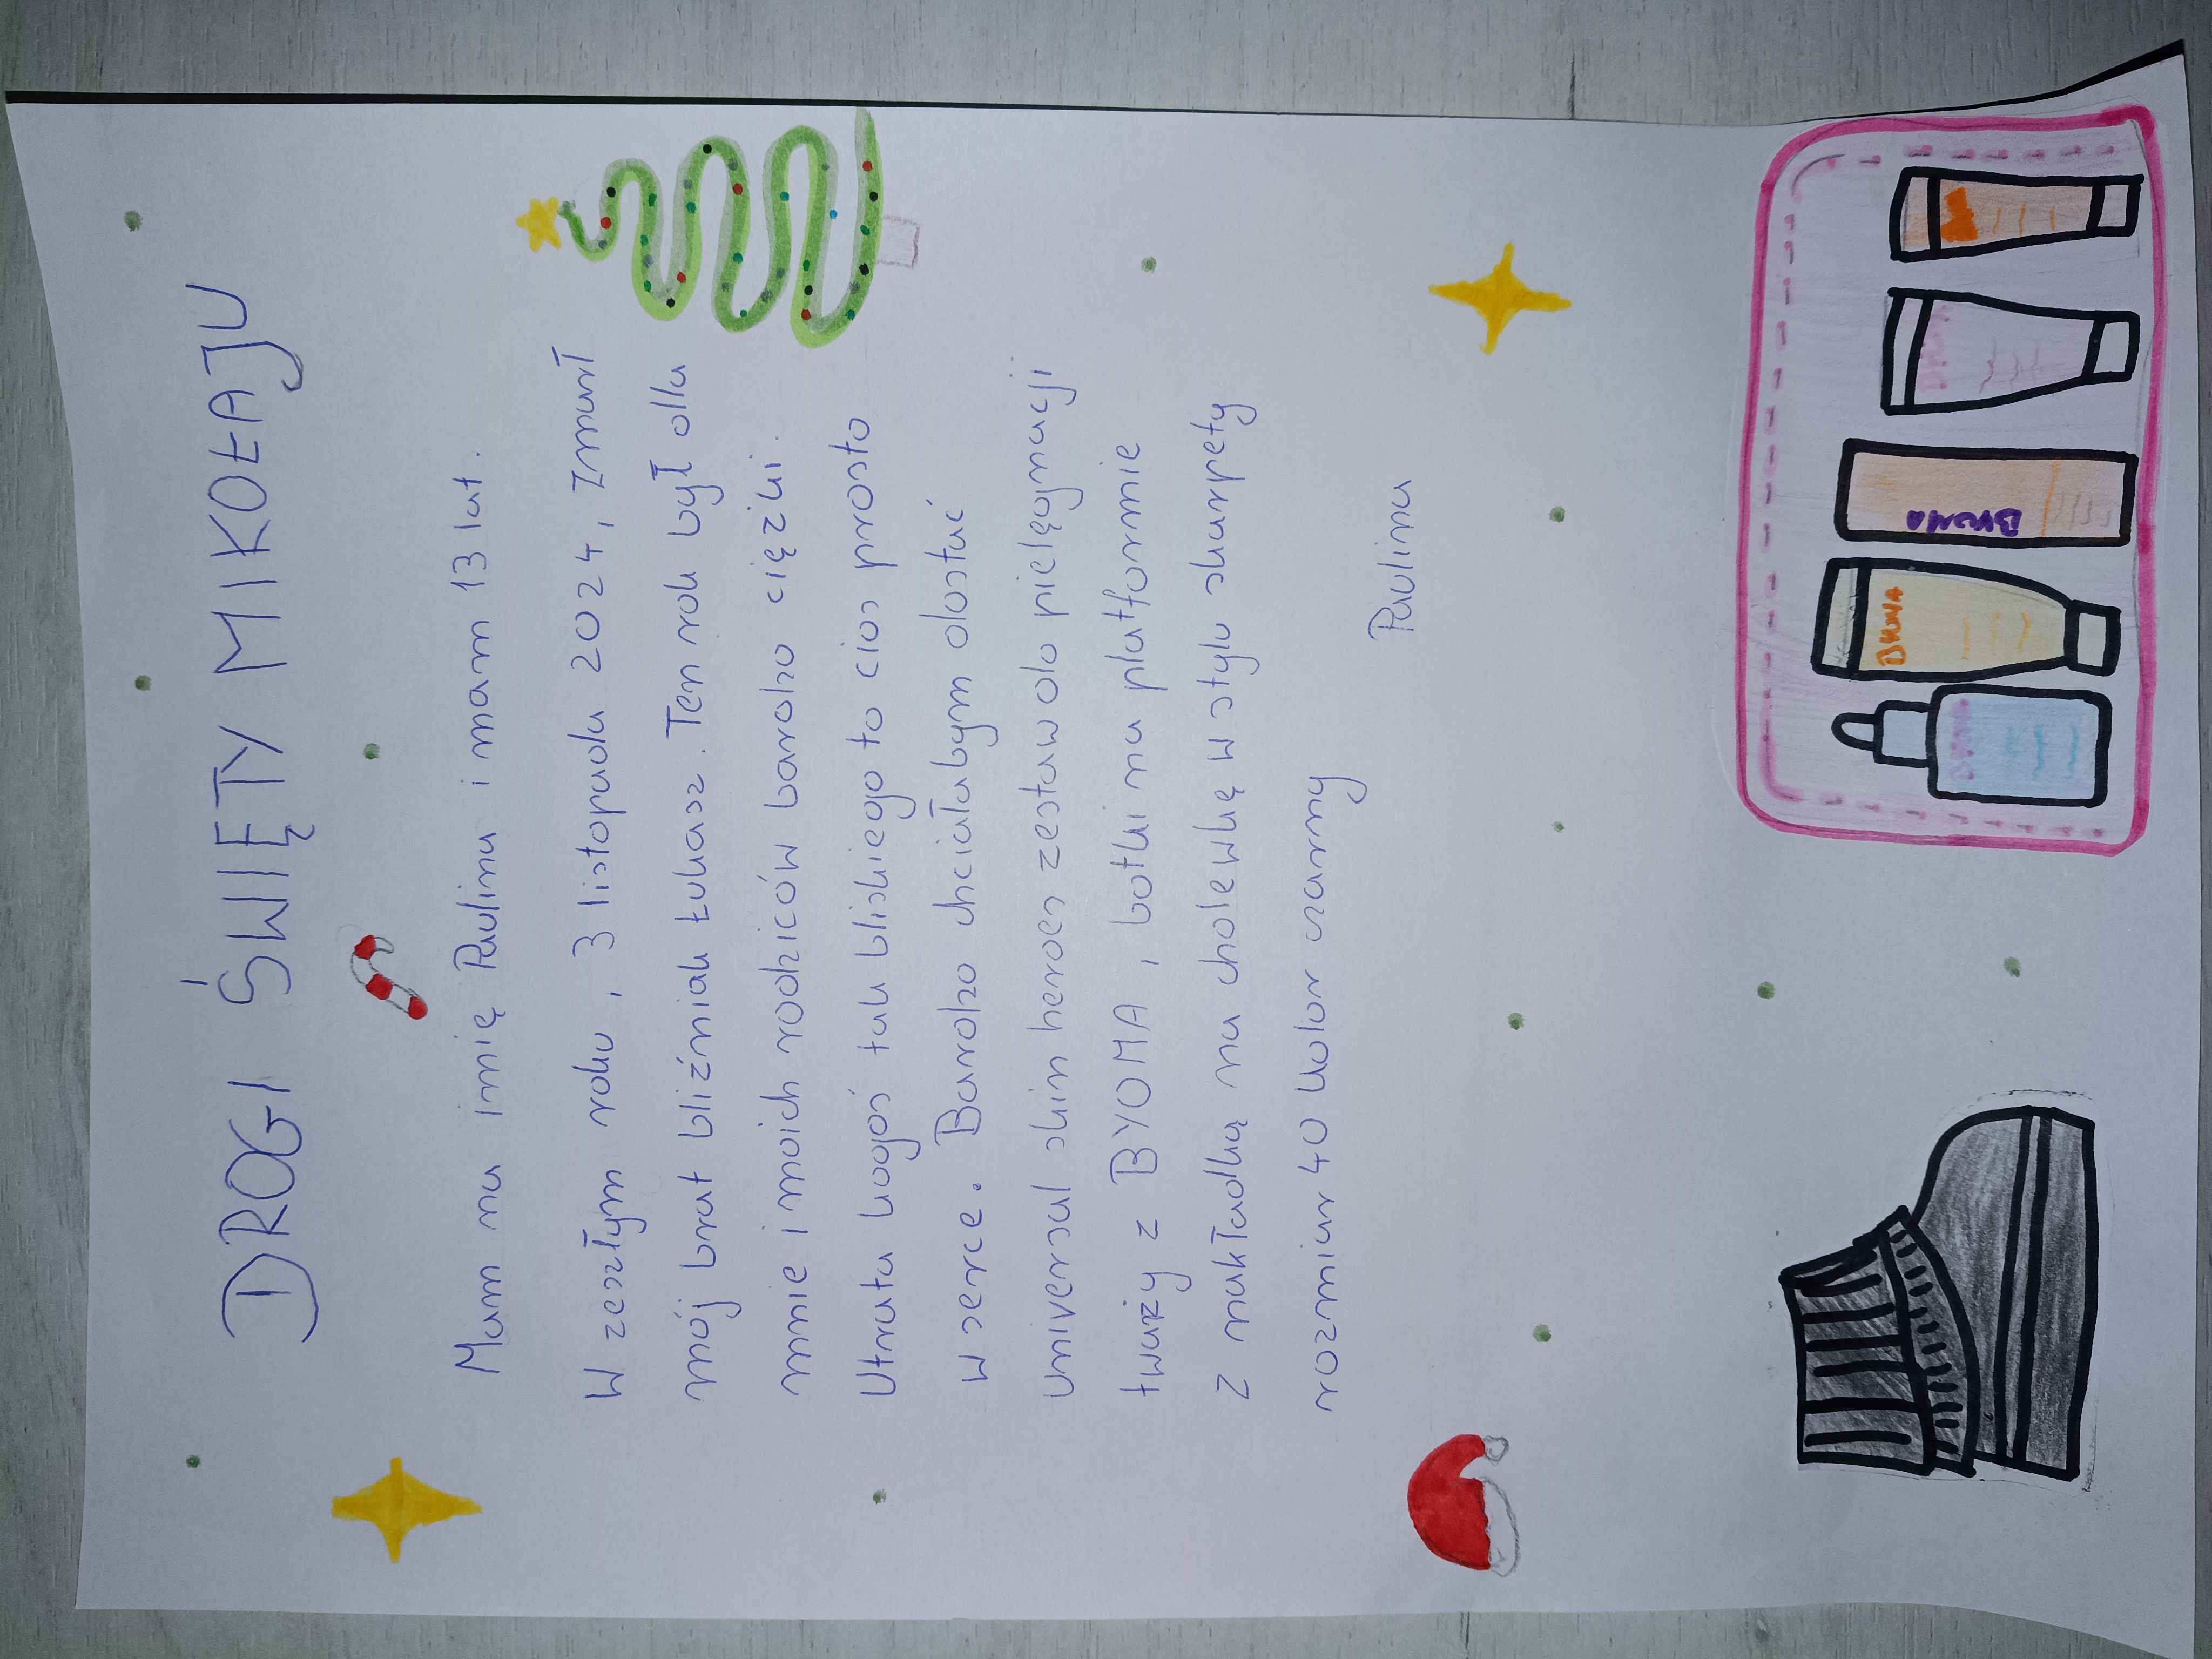 DROGI ŚWIĘTY MIKOŁAJU
Mam na imię Paulina i mam 13 lat.
W zeszłym roku, 3 listopada 2024, zmarł
mój brat bliźniak Łukasz. Ten rok był dla
mnie i moich rodziców bardzo ciężki.
Utrata kogoś tak bliskiego to cios prosto
w serce. Bardzo chciałabym dostać
universal skin heroes zestaw do pielęgnacji
tważy z BYOMA, botki na platformie
z nakładką na cholewkę w stylu skarpety
rozmiar 40 kolor czarny
Paulina
BYOMA
BYOMA
BYOMA